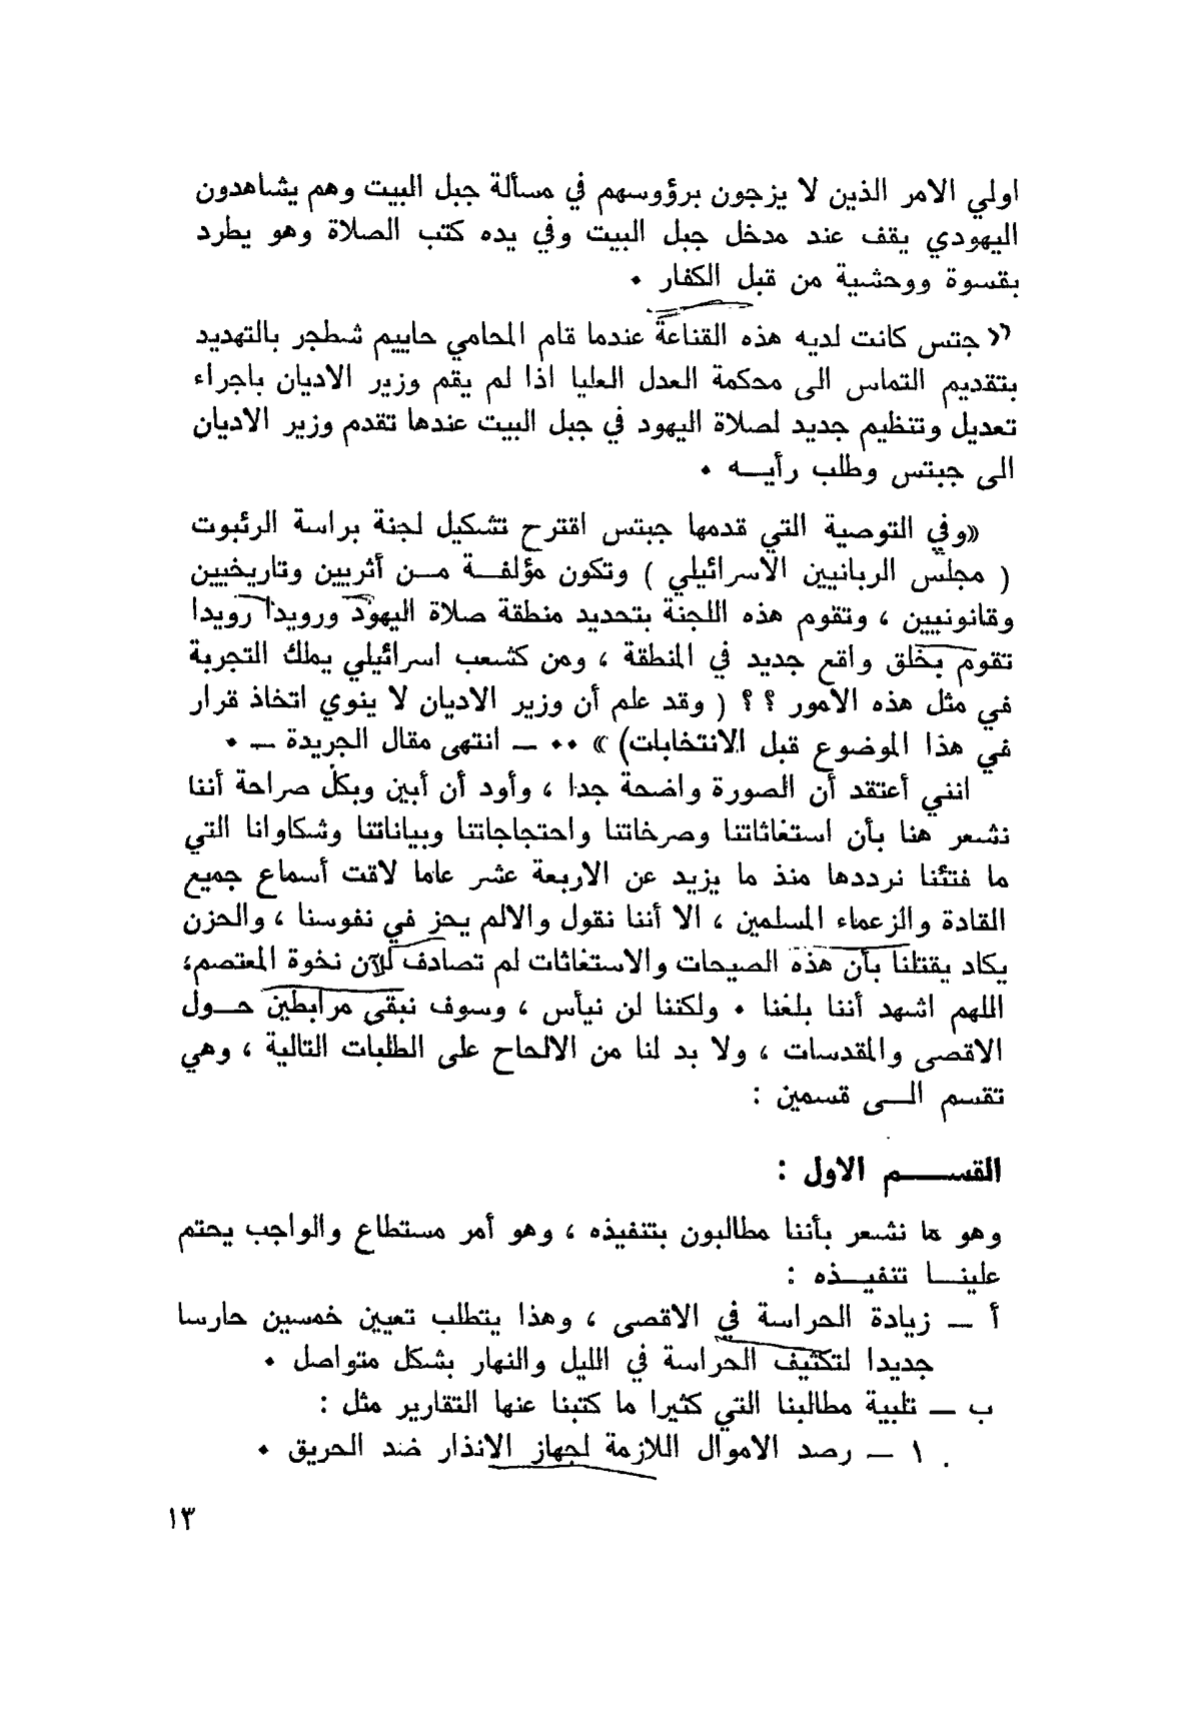 اولي الامر الذين لا يزجون برؤوسهم في مسألة جبل البيت وهم يشاهدون
اليهودي يقف عند مدخل جبل البيت وفي يده كتب الصلاة وهو يطرد
بقسوة ووحشية من قبل الكفار .
«جتس كانت لديه هذه القناعة عندما قام المحامي حاييم شطجر بالتهديد
بتقديم التماس الى محكمة العدل العليا اذا لم يقم وزير الاديان باجراء
تعديل وتنظيم جديد لصلاة اليهود في جبل البيت عندها تقدم وزير الاديان
الى جبتس وطلب رأيـــه .
«وفي التوصية التي قدمها جبتس اقترح تشكيل لجنة براسة الرئبوت
( مجلس الربانيين الاسرائيلي ) وتكون مؤلفـــة مـــن أثريين وتاريخيين
وقانونيين ، وتقوم هذه اللجنة بتحديد منطقة صلاة اليهود ورويدا رويدا
تقوم بخلق واقع جديد في المنطقة ، ومن كشعب اسرائيلي يملك التجربة
في مثل هذه الامور ؟ ؟ ( وقد علم أن وزير الاديان لا ينوي اتخاذ قرار
في هذا الموضوع قبل الانتخابات) » .. ــ انتهى مقال الجريدة ــ .
انني أعتقد أن الصورة واضحة جدا ، وأود أن أبين وبكل صراحة أننا
نشعر هنا بأن استغاثاتنا وصرخاتنا واحتجاجاتنا وبياناتنا وشكاوانا التي
ما فتئنا نرددها منذ ما يزيد عن الاربعة عشر عاما لاقت أسماع جميع
القادة والزعماء المسلمين ، الا أننا نقول والالم يحز في نفوسنا ، والحزن
يكاد يقتلنا بأن هذه الصيحات والاستغاثات لم تصادف للآن نخوة المعتصم؛
اللهم اشهد أننا بلغنا . ولكننا لن نيأس ، وسوف نبقى مرابطين حـــول
الاقصى والمقدسات ، ولا بد لنا من الالحاح على الطلبات التالية ، وهي
تقسم الـــى قسمين :
القســـــم الاول :
وهو ما نشعر بأننا مطالبون بتنفيذه ، وهو أمر مستطاع والواجب يحتم
علينـــا تنفيـــذه :
أ ــ زيادة الحراسة في الاقصى ، وهذا يتطلب تعيين خمسين حارسا
جديدا لتكثيف الحراسة في الليل والنهار بشكل متواصل .
ب ــ تلبية مطالبنا التي كثيرا ما كتبنا عنها التقارير مثل :
١ ــ رصد الاموال اللازمة لجهاز الانذار ضد الحريق .
١٣